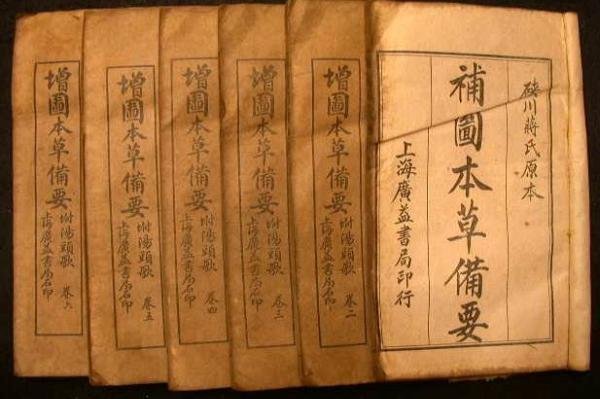 硤川蔣氏原本
補圖本草備要
上海廣益書局印行
增圖本草備要
坿湯頭歌 卷二
上海廣益書局石印
增圖本草備要
坿湯頭歌 卷三
上海廣益書局石印
增圖本草備要
坿湯頭歌 卷四
上海廣益書局石印
增圖本草備要
坿湯頭歌 卷五
上海廣益書局石印
增圖本草備要
坿湯頭歌 卷六
上海廣益書局石印